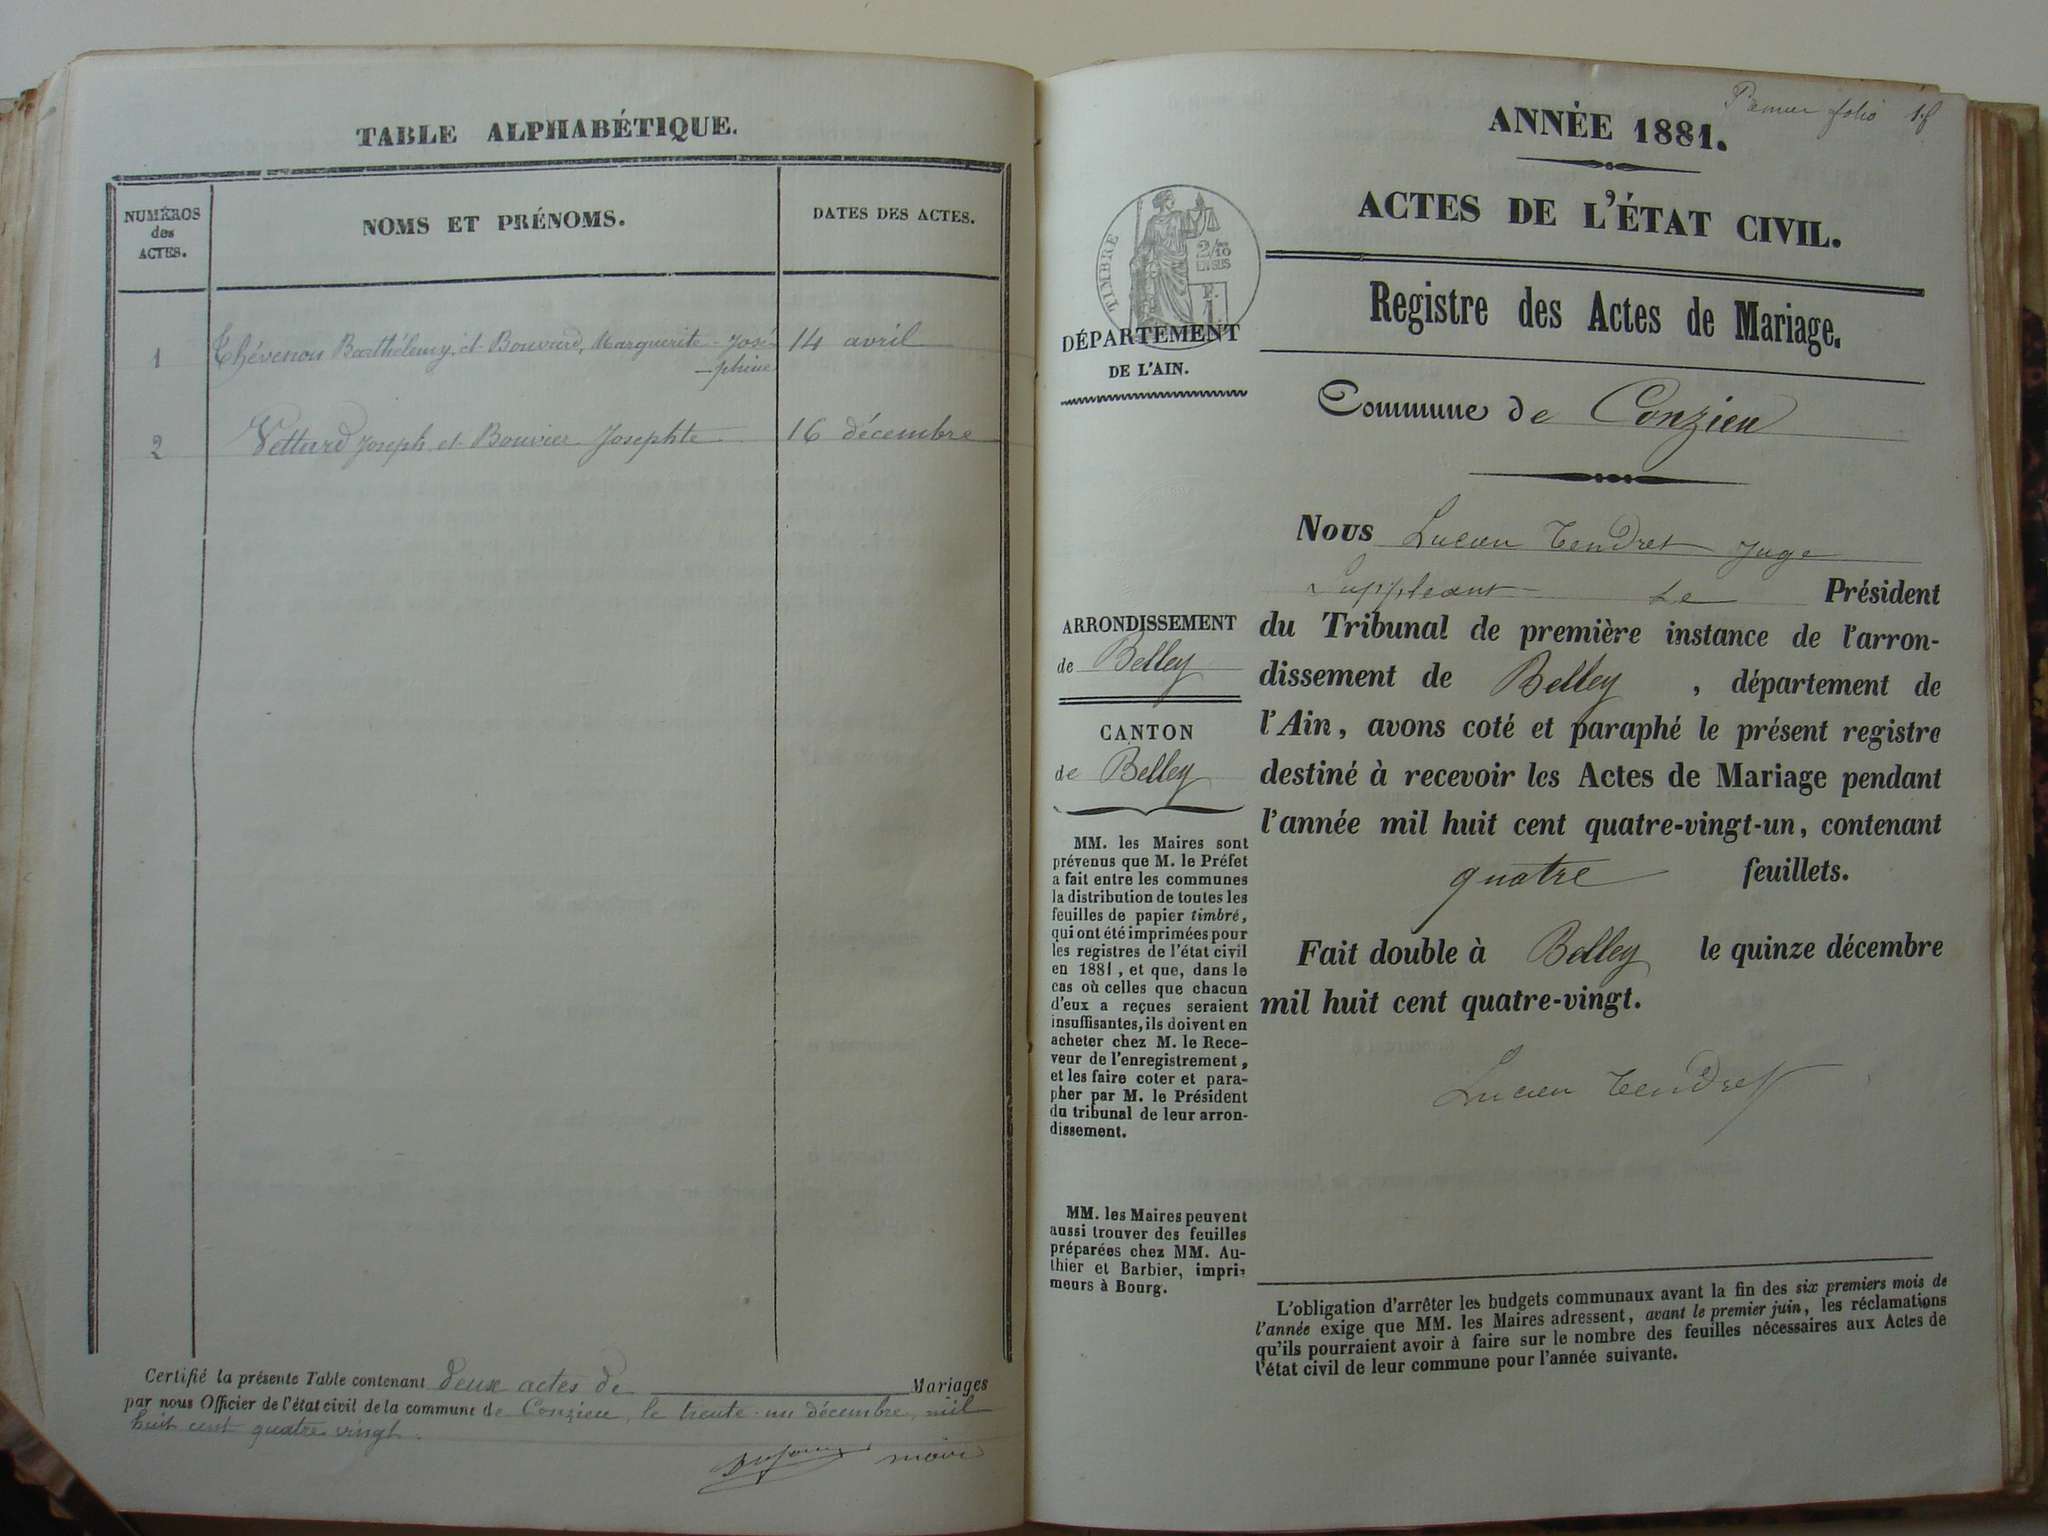 TABLE ALPHABÉTIQUE.
NUMÉROS
des
ACTES.
NOMS ET PRÉNOMS.
DATES DES ACTES.
1 Thévenon Barthélemy et Bouvard, Marguerite-José- 14 avril
phine
2 Vettard Joseph et Bouvier Josephte 16 décembre
Certifié la présente Table contenant deux actes de Mariages
par nous Officier de l'état civil de la commune de Conzieu, le trente-un décembre, mil
huit cent quatre vingt.
maire
Premier folio 1
ANNÉE 1881.
ACTES DE L'ÉTAT CIVIL.
Registre des Actes de Mariage.
Commune de Conzieu
TIMBRE
2/10
EN SUS
F.
1
DÉPARTEMENT
DE L'AIN.
ARRONDISSEMENT
de Belley
CANTON
de Belley
MM. les Maires sont
prévenus que M. le Préfet
a fait entre les communes
la distribution de toutes les
feuilles de papier timbré,
qui ont été imprimées pour
les registres de l'état civil
en 1881, et que, dans le
cas où celles que chacun
d'eux a reçues seraient
insuffisantes, ils doivent en
acheter chez M. le Rece-
veur de l'enregistrement,
et les faire coter et para-
pher par M. le Président
du tribunal de leur arron-
dissement.
MM. les Maires peuvent
aussi trouver des feuilles
préparées chez MM. Au-
thier et Barbier, impri-
meurs à Bourg.
Nous Lucien Tendret Juge
Suppléant Le Président
du Tribunal de première instance de l'arron-
dissement de Belley, département de
l'Ain, avons coté et paraphé le présent registre
destiné à recevoir les Actes de Mariage pendant
l'année mil huit cent quatre-vingt-un, contenant
quatre feuillets.
Fait double à Belley le quinze décembre
mil huit cent quatre-vingt.
Lucien Tendret
L'obligation d'arrêter les budgets communaux avant la fin des six premiers mois de
l'année exige que MM. les Maires adressent, avant le premier juin, les réclamations
qu'ils pourraient avoir à faire sur le nombre des feuilles nécessaires aux Actes de
l'état civil de leur commune pour l'année suivante.